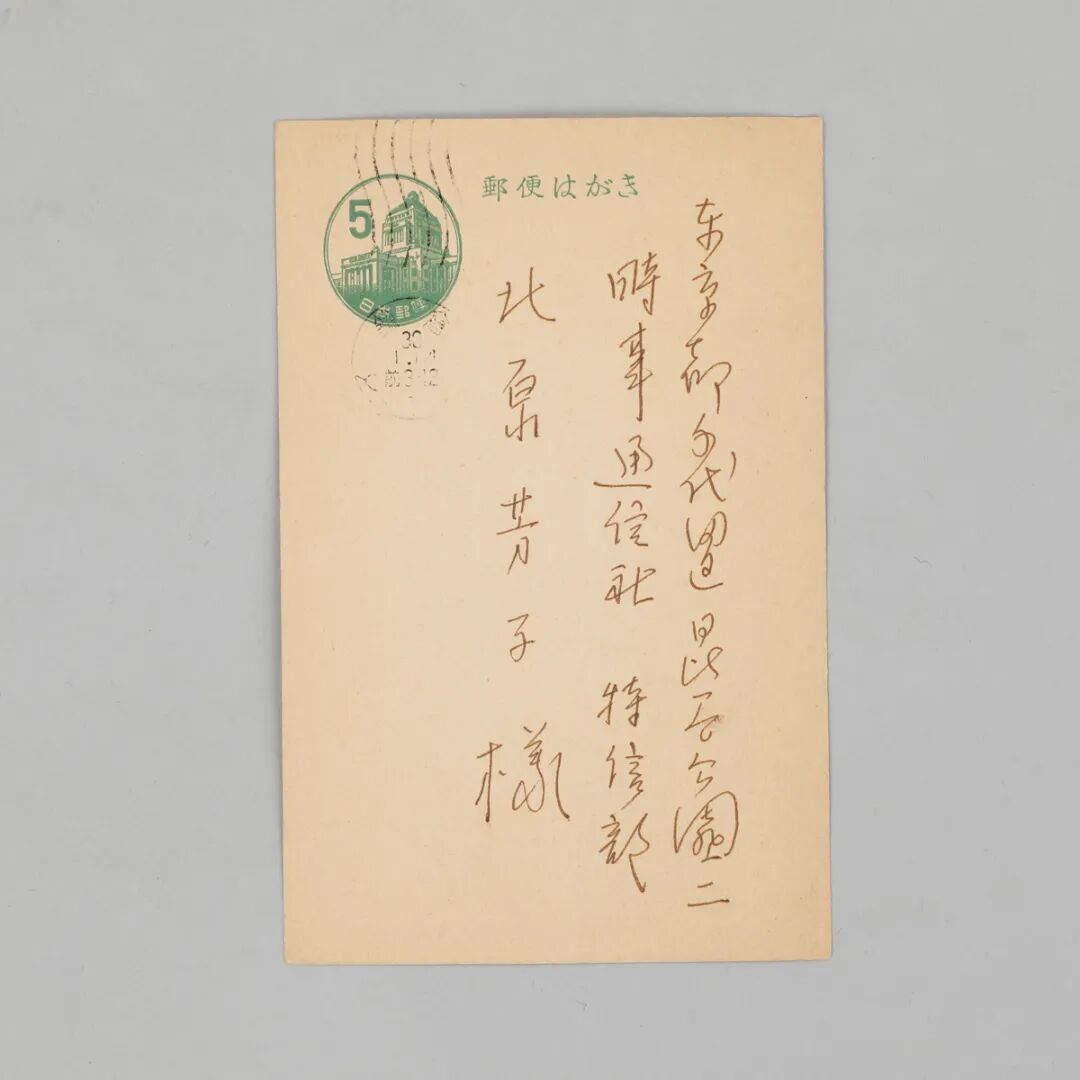 郵便はがき
5
日本郵便
30
前8-12
东京都千代田区日比谷公園二
時事通信社 特信部
北原芳子様